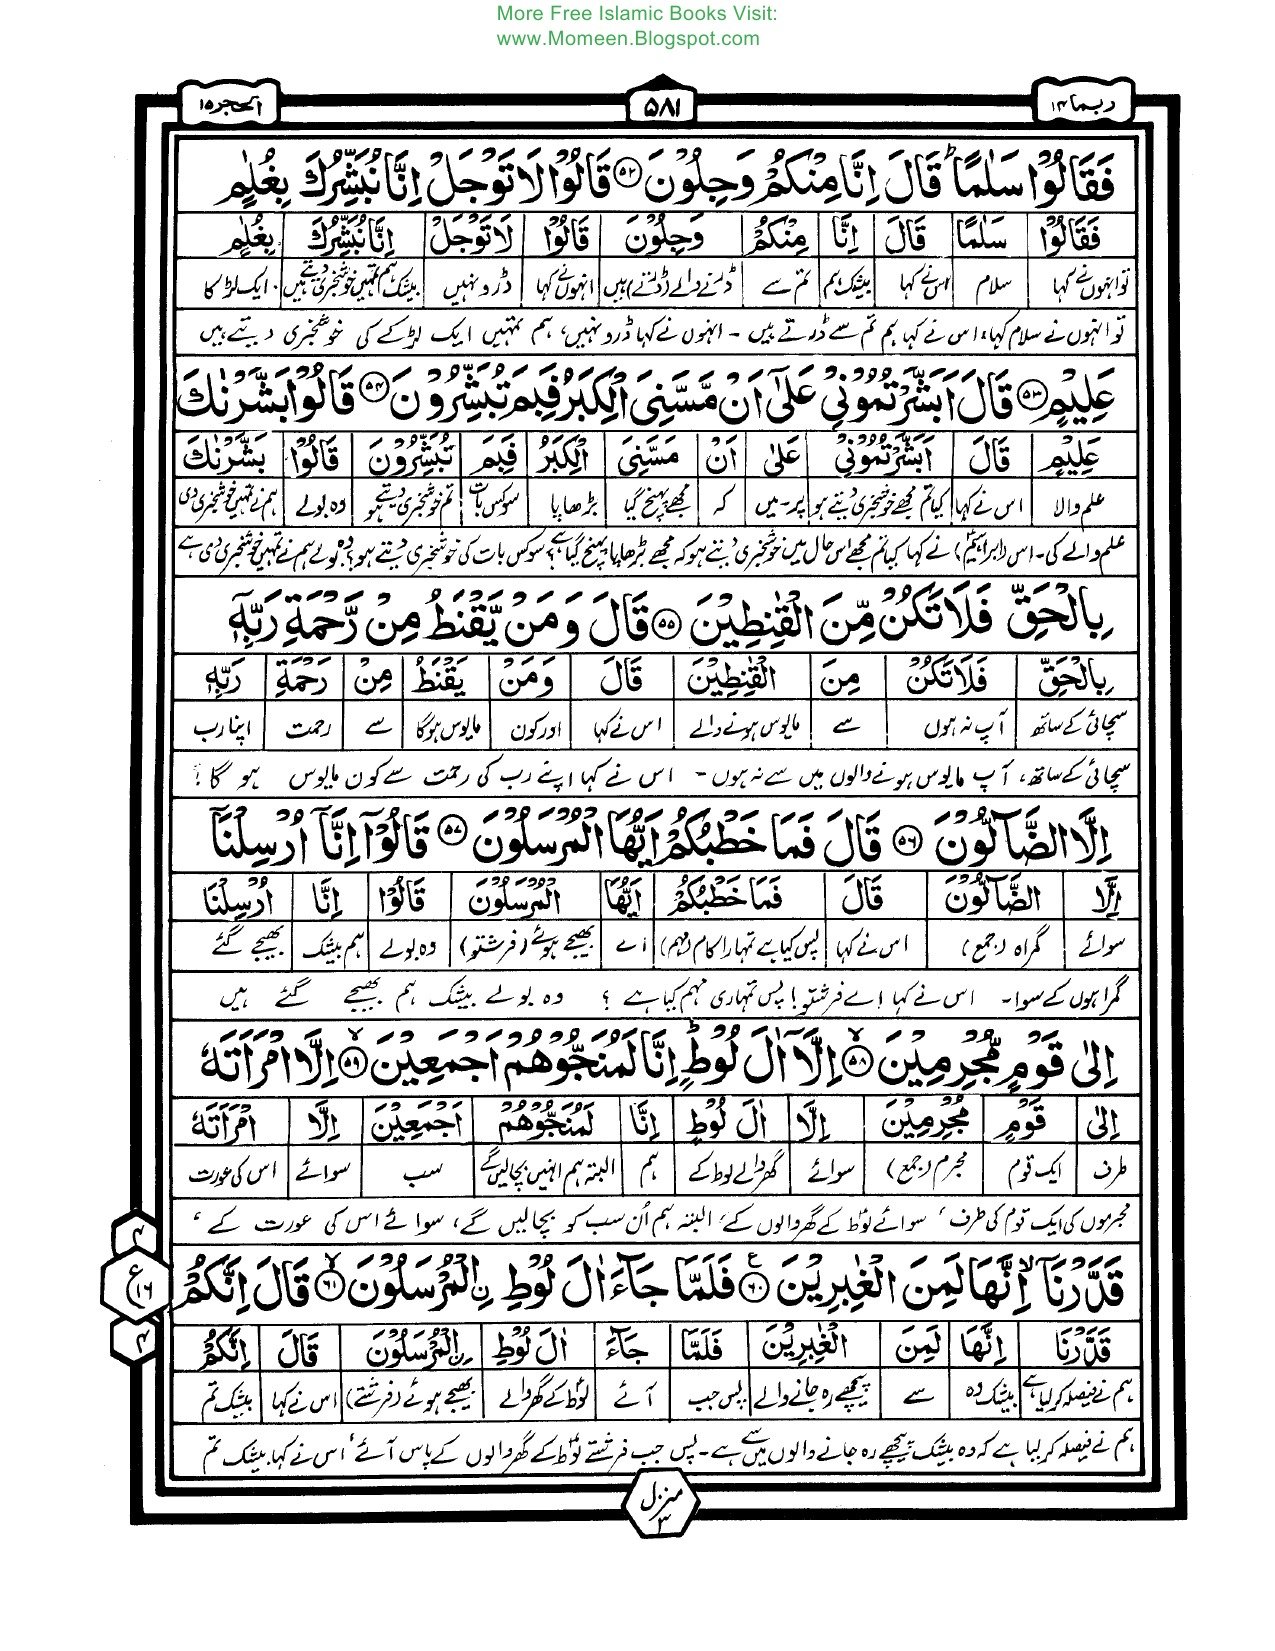 More Free Islamic Books Visit:
www.Momeen.Blogspot.com
ربما ۱۴
۵۸۱
الحجر ۱۵
فَقَالُوْا سَلٰمًا ؕ قَالَ اِنَّا مِنْكُمْ وَجِلُوْنَ ۵۲ قَالُوْا لَا تَوْجَلْ اِنَّا نُبَشِّرُكَ بِغُلٰمٍ
فَقَالُوْا سَلٰمًا قَالَ اِنَّا مِنْكُمْ وَجِلُوْنَ قَالُوْا لَا تَوْجَلْ اِنَّا نُبَشِّرُكَ بِغُلٰمٍ
تو انہوں نے کہا سلام اس نے کہا بیشک ہم تم سے ڈرنے والے (ڈرتے) ہیں انہوں نے کہا ڈرو نہیں بیشک ہم تمہیں خوشخبری دیتے ہیں ایک لڑکا
تو انہوں نے سلام کہا، اس نے کہا ہم تم سے ڈرتے ہیں ۔ انہوں نے کہا ڈرو نہیں، ہم تمہیں ایک لڑکے کی خوشخبری دیتے ہیں
عَلِيْمٍ ۵۳ قَالَ اَبَشَّرْتُمُوْنِيْ عَلٰۤى اَنْ مَّسَّنِيَ الْكِبَرُ فَبِمَ تُبَشِّرُوْنَ ۵۴ قَالُوْا بَشَّرْنٰكَ
عَلِيْمٍ قَالَ اَبَشَّرْتُمُوْنِيْ عَلٰى اَنْ مَّسَّنِيَ الْكِبَرُ فَبِمَ تُبَشِّرُوْنَ قَالُوْا بَشَّرْنٰكَ
علم والا اس نے کہا کیا تم مجھے خوشخبری دیتے ہو پر۔میں کہ مجھے پہنچ گیا بڑھاپا سو کس بات تم خوشخبری دیتے ہو وہ بولے ہم نے تمہیں خوشخبری دی
علم والے کی۔ اس (ابراہیمؑ) نے کہا کیا تم مجھے اس حال میں خوشخبری دیتے ہو کہ مجھے بڑھاپا پہنچ گیا ہے؟ سو کس بات کی خوشخبری دیتے ہو؟ وہ بولے ہم نے تمہیں خوشخبری دی ہے
بِالْحَقِّ فَلَا تَكُنْ مِّنَ الْقٰنِطِيْنَ ۵۵ قَالَ وَمَنْ يَّقْنَطُ مِنْ رَّحْمَةِ رَبِّهٖۤ
بِالْحَقِّ فَلَا تَكُنْ مِنَ الْقٰنِطِيْنَ قَالَ وَمَنْ يَقْنَطُ مِنْ رَحْمَةِ رَبِّهٖ
سچائی کے ساتھ آپ نہ ہوں سے مایوس ہونے والے اس نے کہا اور کون مایوس ہوگا سے رحمت اپنا رب
سچائی کے ساتھ، آپ مایوس ہونے والوں میں سے نہ ہوں ۔ اس نے کہا اپنے رب کی رحمت سے کون مایوس ہو گا ؟
اِلَّا الضَّآلُّوْنَ ۵۶ قَالَ فَمَا خَطْبُكُمْ اَيُّهَا الْمُرْسَلُوْنَ ۵۷ قَالُوْۤا اِنَّاۤ اُرْسِلْنَاۤ
اِلَّا الضَّآلُّوْنَ قَالَ فَمَا خَطْبُكُمْ اَيُّهَا الْمُرْسَلُوْنَ قَالُوْا اِنَّا اُرْسِلْنَا
سوائے گمراہ (جمع) اس نے کہا پس کیا ہے تمہارا کام (مہم) اے بھیجے ہوئے (فرشتو) وہ بولے ہم بیشک بھیجے گئے
گمراہوں کے سوا۔ اس نے کہا اے فرشتو! پس تمہاری مہم کیا ہے ؟ وہ بولے بیشک ہم بھیجے گئے ہیں
اِلٰى قَوْمٍ مُّجْرِمِيْنَ ۵۸ اِلَّاۤ اٰلَ لُوْطٍ ؕ اِنَّا لَمُنَجُّوْهُمْ اَجْمَعِيْنَ ۵۹ اِلَّا امْرَاَتَهٗ
اِلٰى قَوْمٍ مُجْرِمِيْنَ اِلَّا اٰلَ لُوْطٍ اِنَّا لَمُنَجُّوْهُمْ اَجْمَعِيْنَ اِلَّا امْرَاَتَهٗ
طرف ایک قوم مجرم (جمع) سوائے گھر والے لوط کے ہم البتہ ہم انہیں بچا لیں گے سب سوائے اس کی عورت
مجرموں کی ایک قوم کی طرف ، سوائے لوطؑ کے گھر والوں کے ، البتہ ہم اُن سب کو بچا لیں گے ، سوائے اس کی عورت کے ،
قَدَّرْنَاۤ ۙ اِنَّهَا لَمِنَ الْغٰبِرِيْنَ ۶۰ فَلَمَّا جَآءَ اٰلَ لُوْطِ ۨالْمُرْسَلُوْنَ ۶۱ قَالَ اِنَّكُمْ
قَدَّرْنَا اِنَّهَا لَمِنَ الْغٰبِرِيْنَ فَلَمَّا جَآءَ اٰلَ لُوْطِ ۨالْمُرْسَلُوْنَ قَالَ اِنَّكُمْ
ہم نے فیصلہ کر لیا ہے بیشک وہ سے پیچھے رہ جانے والے پس جب آئے لوطؑ کے گھر والے بھیجے ہوئے (فرشتے) اس نے کہا بیشک تم
ہم نے فیصلہ کر لیا ہے کہ وہ بیشک پیچھے رہ جانے والوں میں سے ہے۔ پس جب فرشتے لوطؑ کے گھر والوں کے پاس آئے ، اس نے کہا، بیشک تم
۴
ع ۱۶
۴
منزل ۳